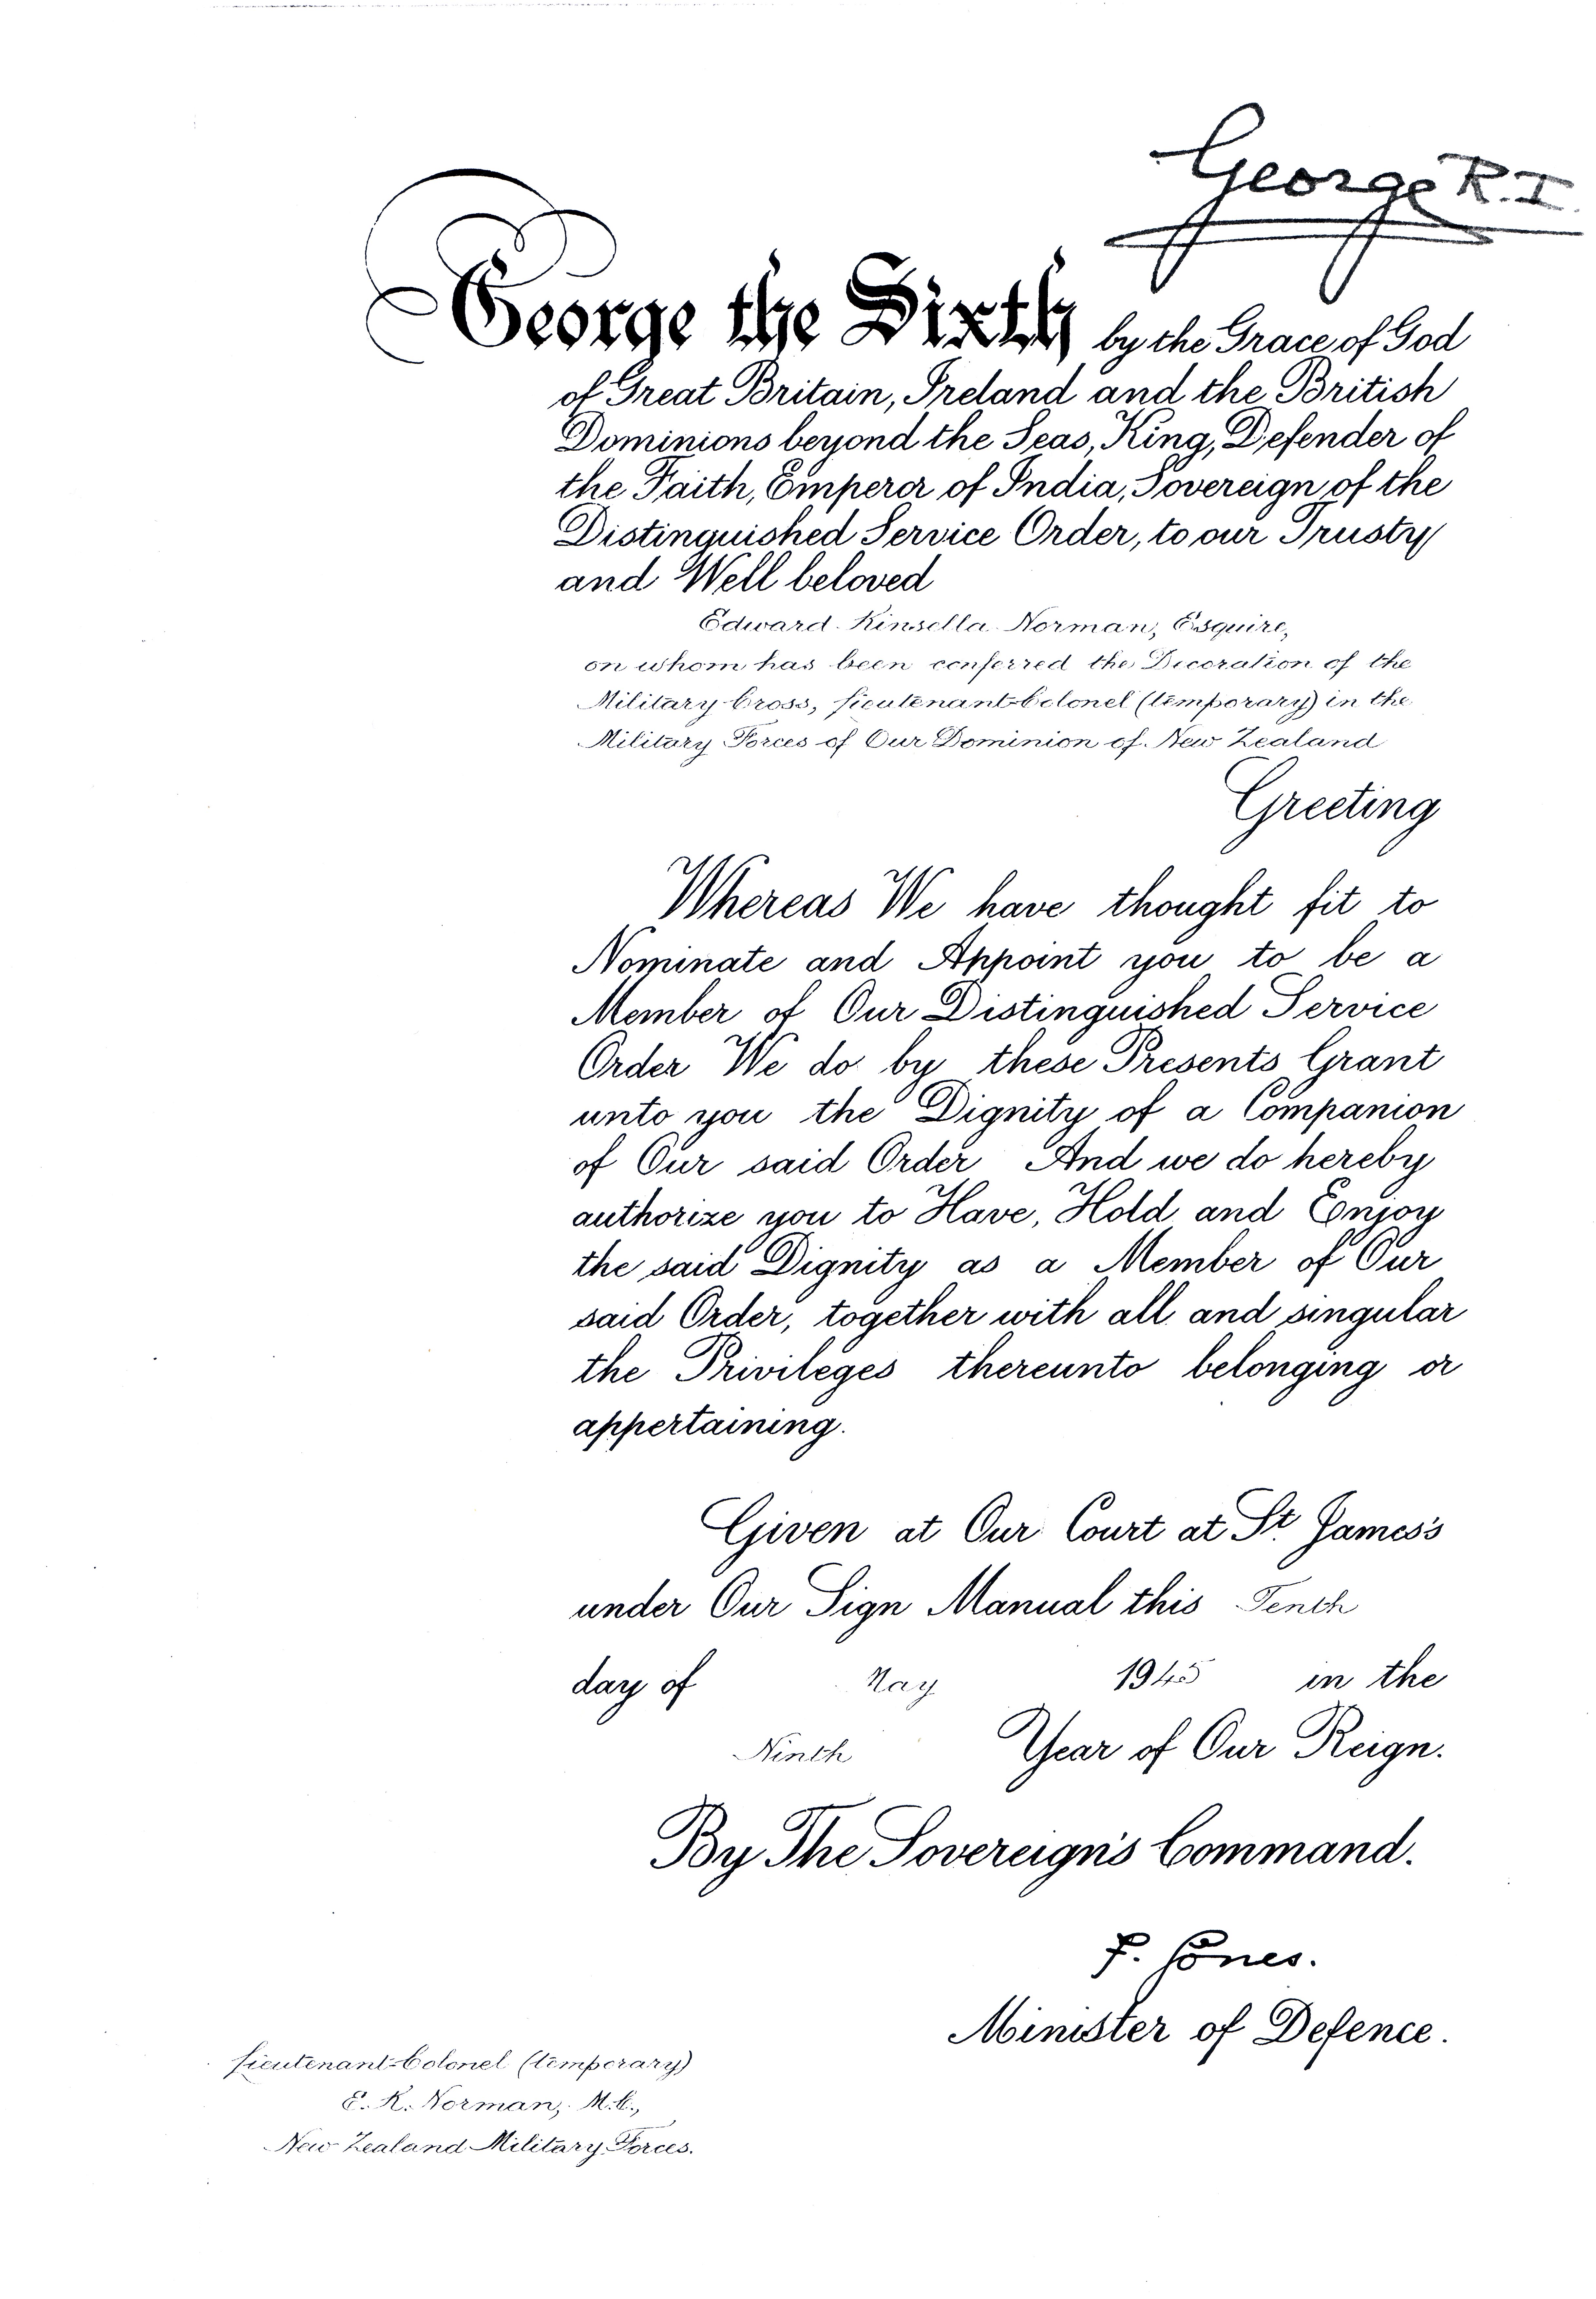 George R.I.
George the Sixth by the Grace of God
of Great Britain, Ireland and the British
Dominions beyond the Seas, King, Defender of
the Faith, Emperor of India, Sovereign of the
Distinguished Service Order, to our Trusty
and Well beloved
Edward Kinsella Norman, Esquire,
on whom has been conferred the Decoration of the
Military Cross, Lieutenant-Colonel (temporary) in the
Military Forces of Our Dominion of New Zealand
Greeting
Whereas We have thought fit to
Nominate and Appoint you to be a
Member of Our Distinguished Service
Order We do by these Presents Grant
unto you the Dignity of a Companion
of Our said Order And we do hereby
authorize you to Have, Hold and Enjoy
the said Dignity as a Member of Our
said Order, together with all and singular
the Privileges thereunto belonging or
appertaining.
Given at Our Court at St. James's
under Our Sign Manual this Tenth
day of May 1945 in the
Ninth Year of Our Reign.
By The Sovereign's Command.
F. Jones.
Minister of Defence.
Lieutenant-Colonel (temporary)
E. K. Norman, M.C.,
New Zealand Military Forces.